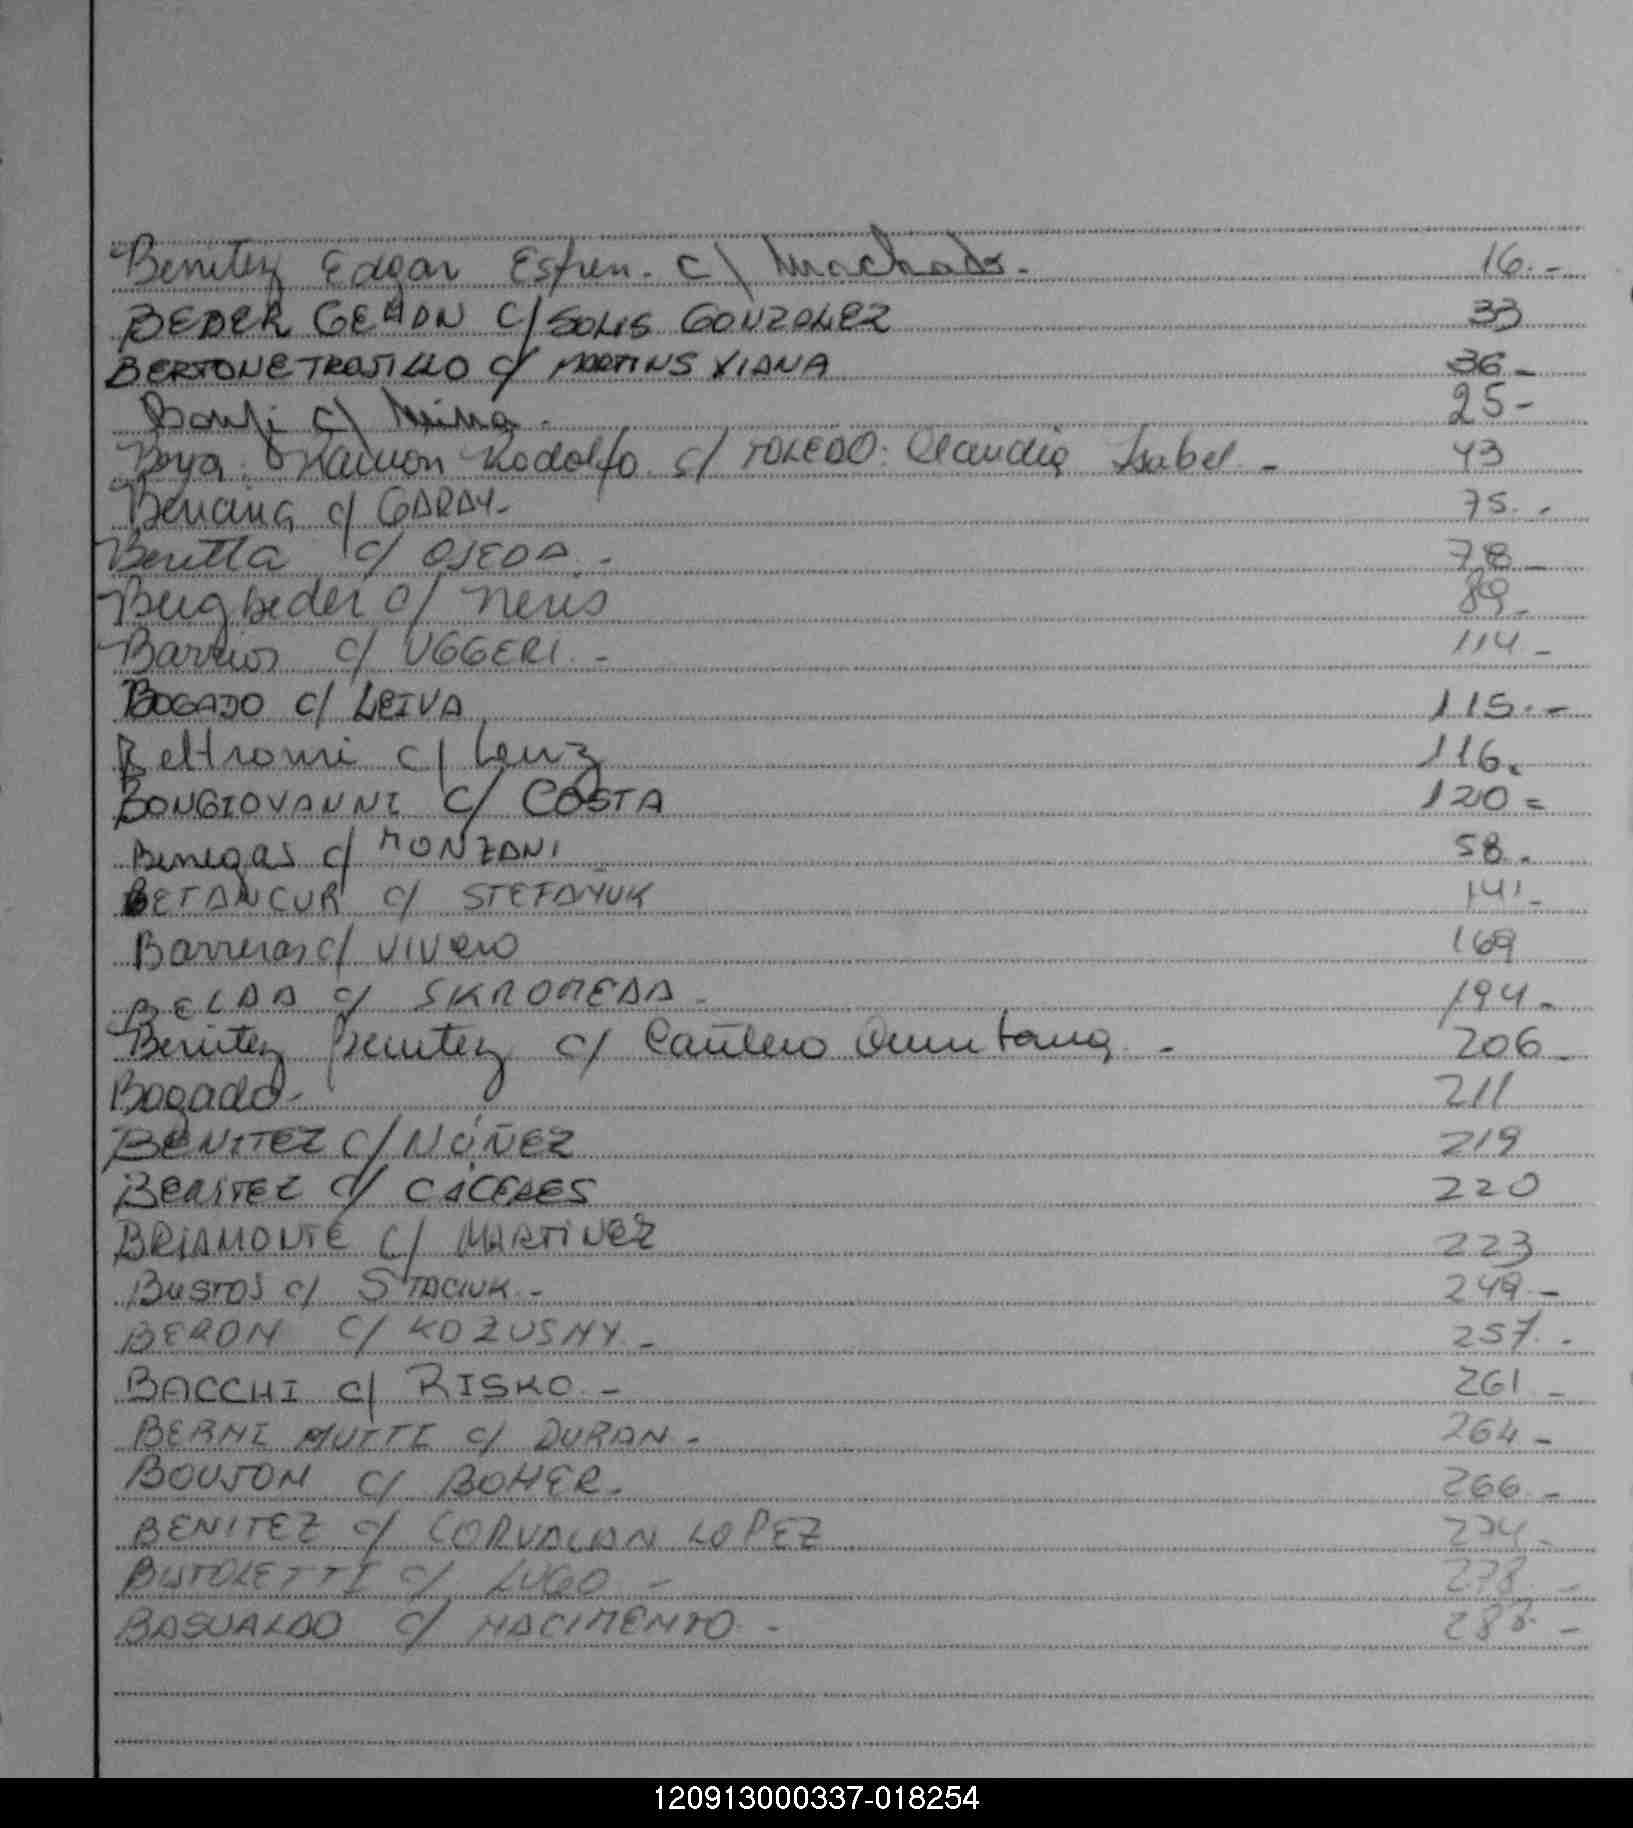 Benitez Edgar Esfren. c/ Machado. 16.-
BEDER GEMON c/ SOLIS GONZALEZ 33
BERTONE TRUJILLO c/ MARTINS VIANA 36-
c/ 25-
Boya Ramon Rodolfo c/ TOLEDO. Claudia Isabel - 43
Bencina c/ GARAY- 75.-
Beretta c/ OJEDA.- 78-
Beigbeder c/ Neris 89-
Barrios c/ UGGERI.- 114-
BOGADO c/ LEIVA 115.-
Beltromi c/ Lenz 116.
BONGIOVANNI c/ COSTA 120=
Benegas c/ MONZANI 58.
BETANCUR c/ STEFAÑUK 141-
Barreras c/ Vivero 169
BELDA c/ SKROMEDA- 194-
Benitez Benitez c/ Cantero Quintana.- 206-
Bogado- 211
BENITEZ c/ NÚÑEZ 219
BENITEZ c/ CACERES 220
BRIAMONTE c/ MARTINEZ 223
BUSTOS c/ STACIUK.- 249-
BERON c/ KOZUSNY- 257.-
BACCHI c/ RISKO.- 261-
BERNI MUTTI c/ DURAN- 264-
BOUJON c/ BOHER- 266.-
BENITEZ c/ CORVALAN LOPEZ 274-
BUTOLETTI c/ LUGO- 278.-
BASUALDO c/ NACIMENTO.-
120913000337-018254